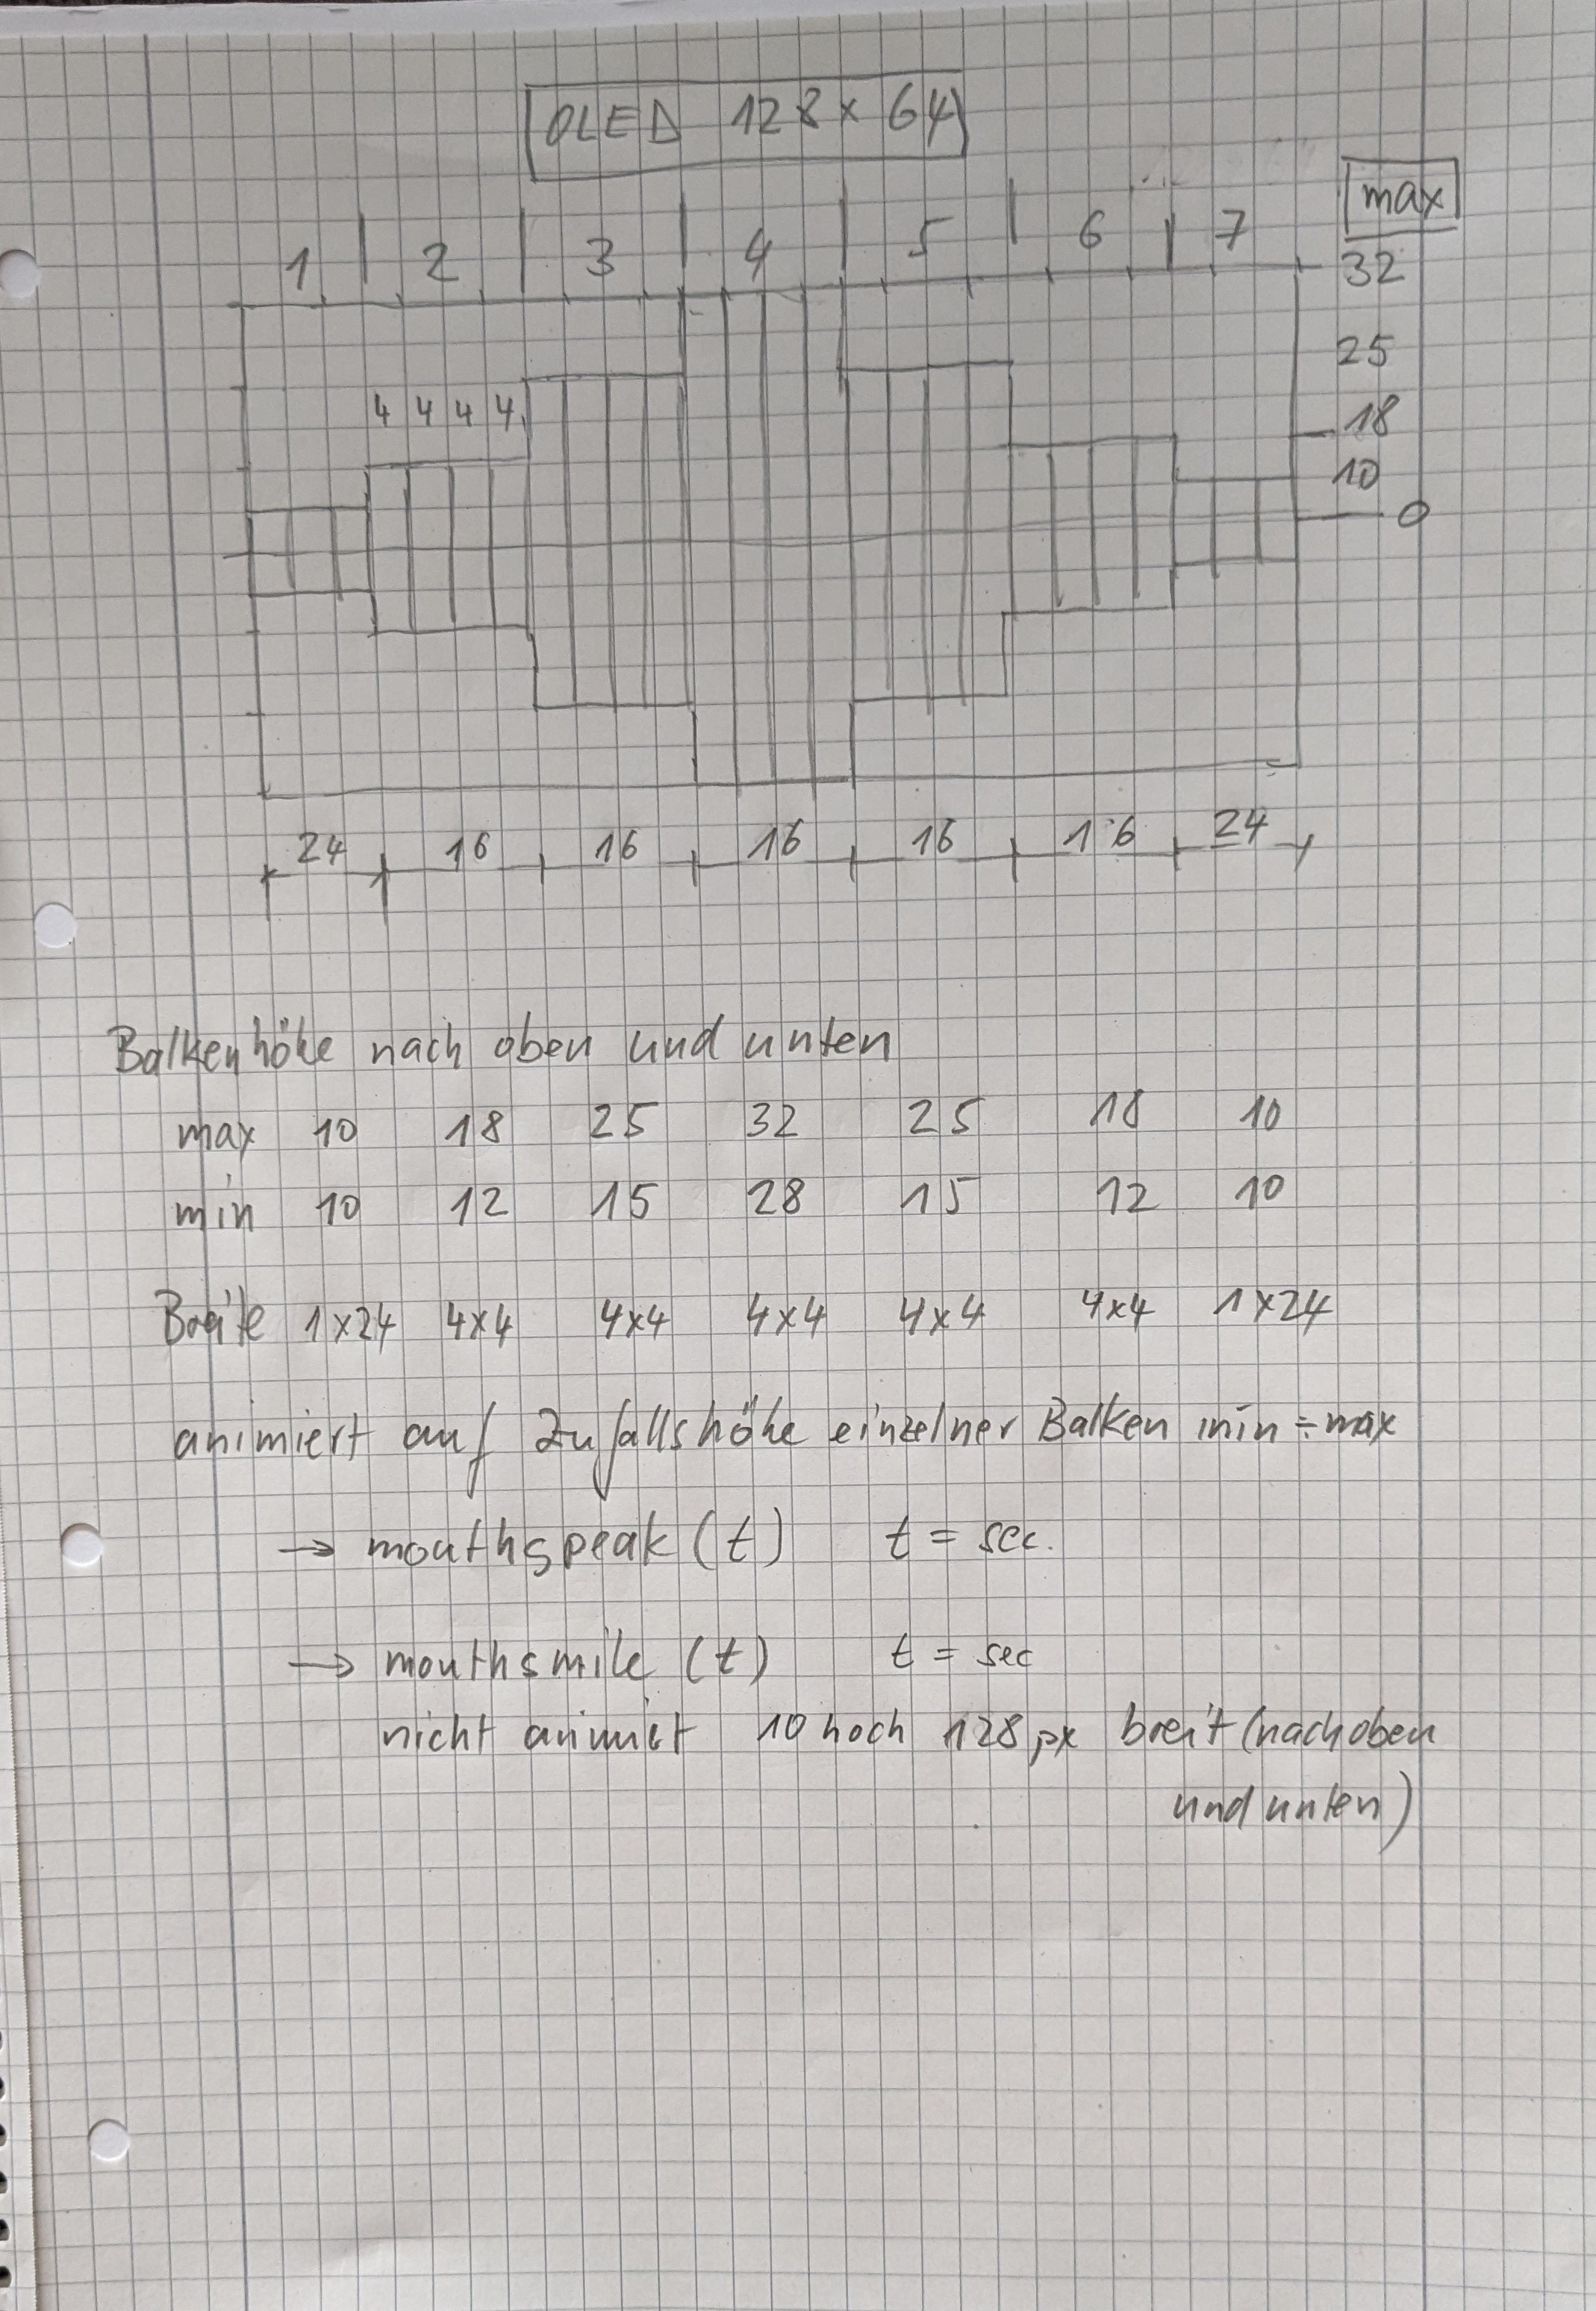 OLED 128 x 64
max
1 2 3 4 5 6 7
32
25
4 4 4 4
18
10
0
24 16 16 16 16 16 24
Balkenhöhe nach oben und unten
max 10 18 25 32 25 18 10
min 10 12 15 28 15 12 10
Breite 1x24 4x4 4x4 4x4 4x4 4x4 1x24
animiert auf Zufallshöhe einzelner Balken min ÷ max
→ mouthspeak (t) t = sec.
→ mouthsmile (t) t = sec
nicht animiert 10 hoch 128 px breit (nach oben
und unten)